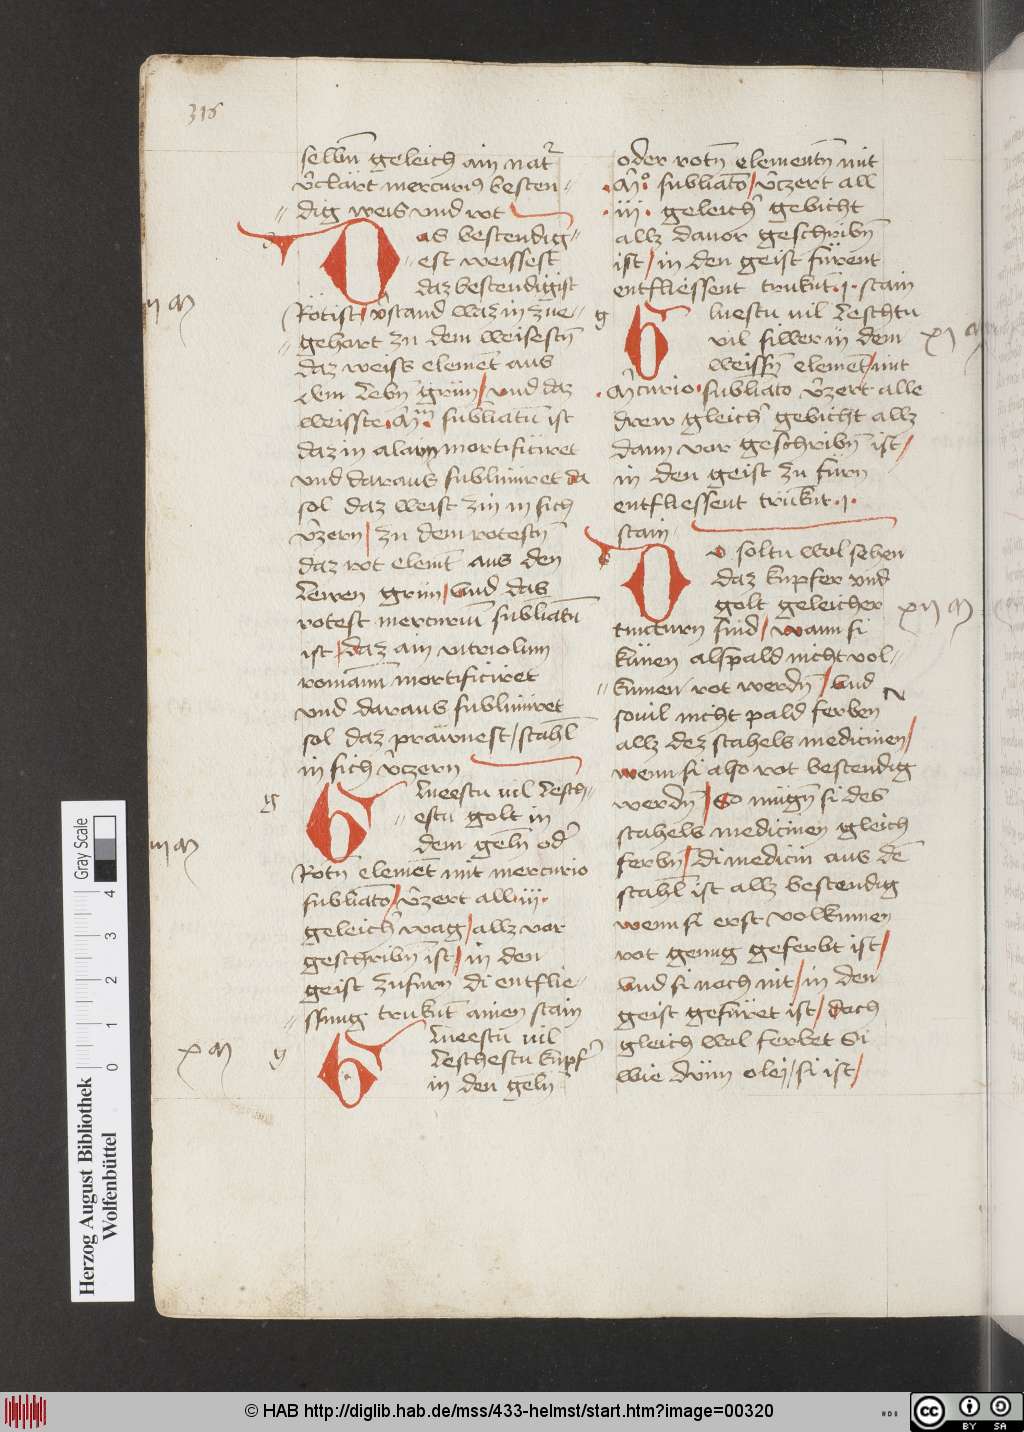 316
selbñ geleich ain nat᷒
v̉clart mercuri9 besten=
dig weis vnd rot
Das bestendig=
est weissest
daz bestendigist
Rötist / v̉stand waz in zue=
gehort zu dem weisestñ
daz weiss elemēt aus
dem Lebñ grün / vnd daz
weisste · m̉m · subliatū ist
daz in alaun mortificiret
vnd daraus sublimiret da
sol daz weist zin in sich
v̉zern / zu dem rotestñ
daz rot elemt̄ aus den
Lewen grün / vnd das
rotest mercuriū subliatū
ist / daz ain vitriolum
romanm̄ mortificiret
vnd daraus sublimiret
sol daz prawnest / stahl̄
in sich v̉czern
Glueestu vil Lesch=
estu golt in
dem gelñ od̉
Rotñ elemēt mit mercurio
subliato / v̉zert all · iii ·
geleich̉ wag / allz vor
geschribñ ist / in den
geist zufurñ di entflie=
ssung trukn̄t ainen stain
Glueestu vil
Leschestu kupf̉
in den gelñ
oder rotñ elementñ mit
· m̉o · subliato / v̉czert all
· iii · geleich̉ gebicht
allz dauor geschribñ
ist / in den geist fürent
entfliessent trukn̄t · i · stain
Gluestu vil Leschtu
vil silwer in dem
weissñ elemēt / mit
· m̉curio · subliato v̉zert alle
drew gleich̉ gebicht allz
dann vor geschribñ ist /
in den geist zu fürn
entfliessent trukn̄t · i ·
stain
Do soltu wol sehen
daz kupfer vnd
golt geleicher
tincturn sind / wann si
künen alspald nicht vol=
kumen rot werdñ / vnd
souil nicht pald ferben
allz dez stahels medicinen /
wenn si also rot bestendig
werdñ / So mügñ si des
stahels medicinen gleich
ferbñ / di medicin aus dē
stahl̄ ist allz bestendig
wenn si erst volkumen
rot genug geferbt ist /
vnd si noch nit / in den
geist gefüret ist / doch
gleich wol ferbet Si
wie dünn olej / si ist /
xj m
xij m
x m
Herzog August Bibliothek
Wolfenbüttel
0 1 2 3 4
Gray Scale
© HAB http://diglib.hab.de/mss/433-helmst/start.htm?image=00320
cc BY SA